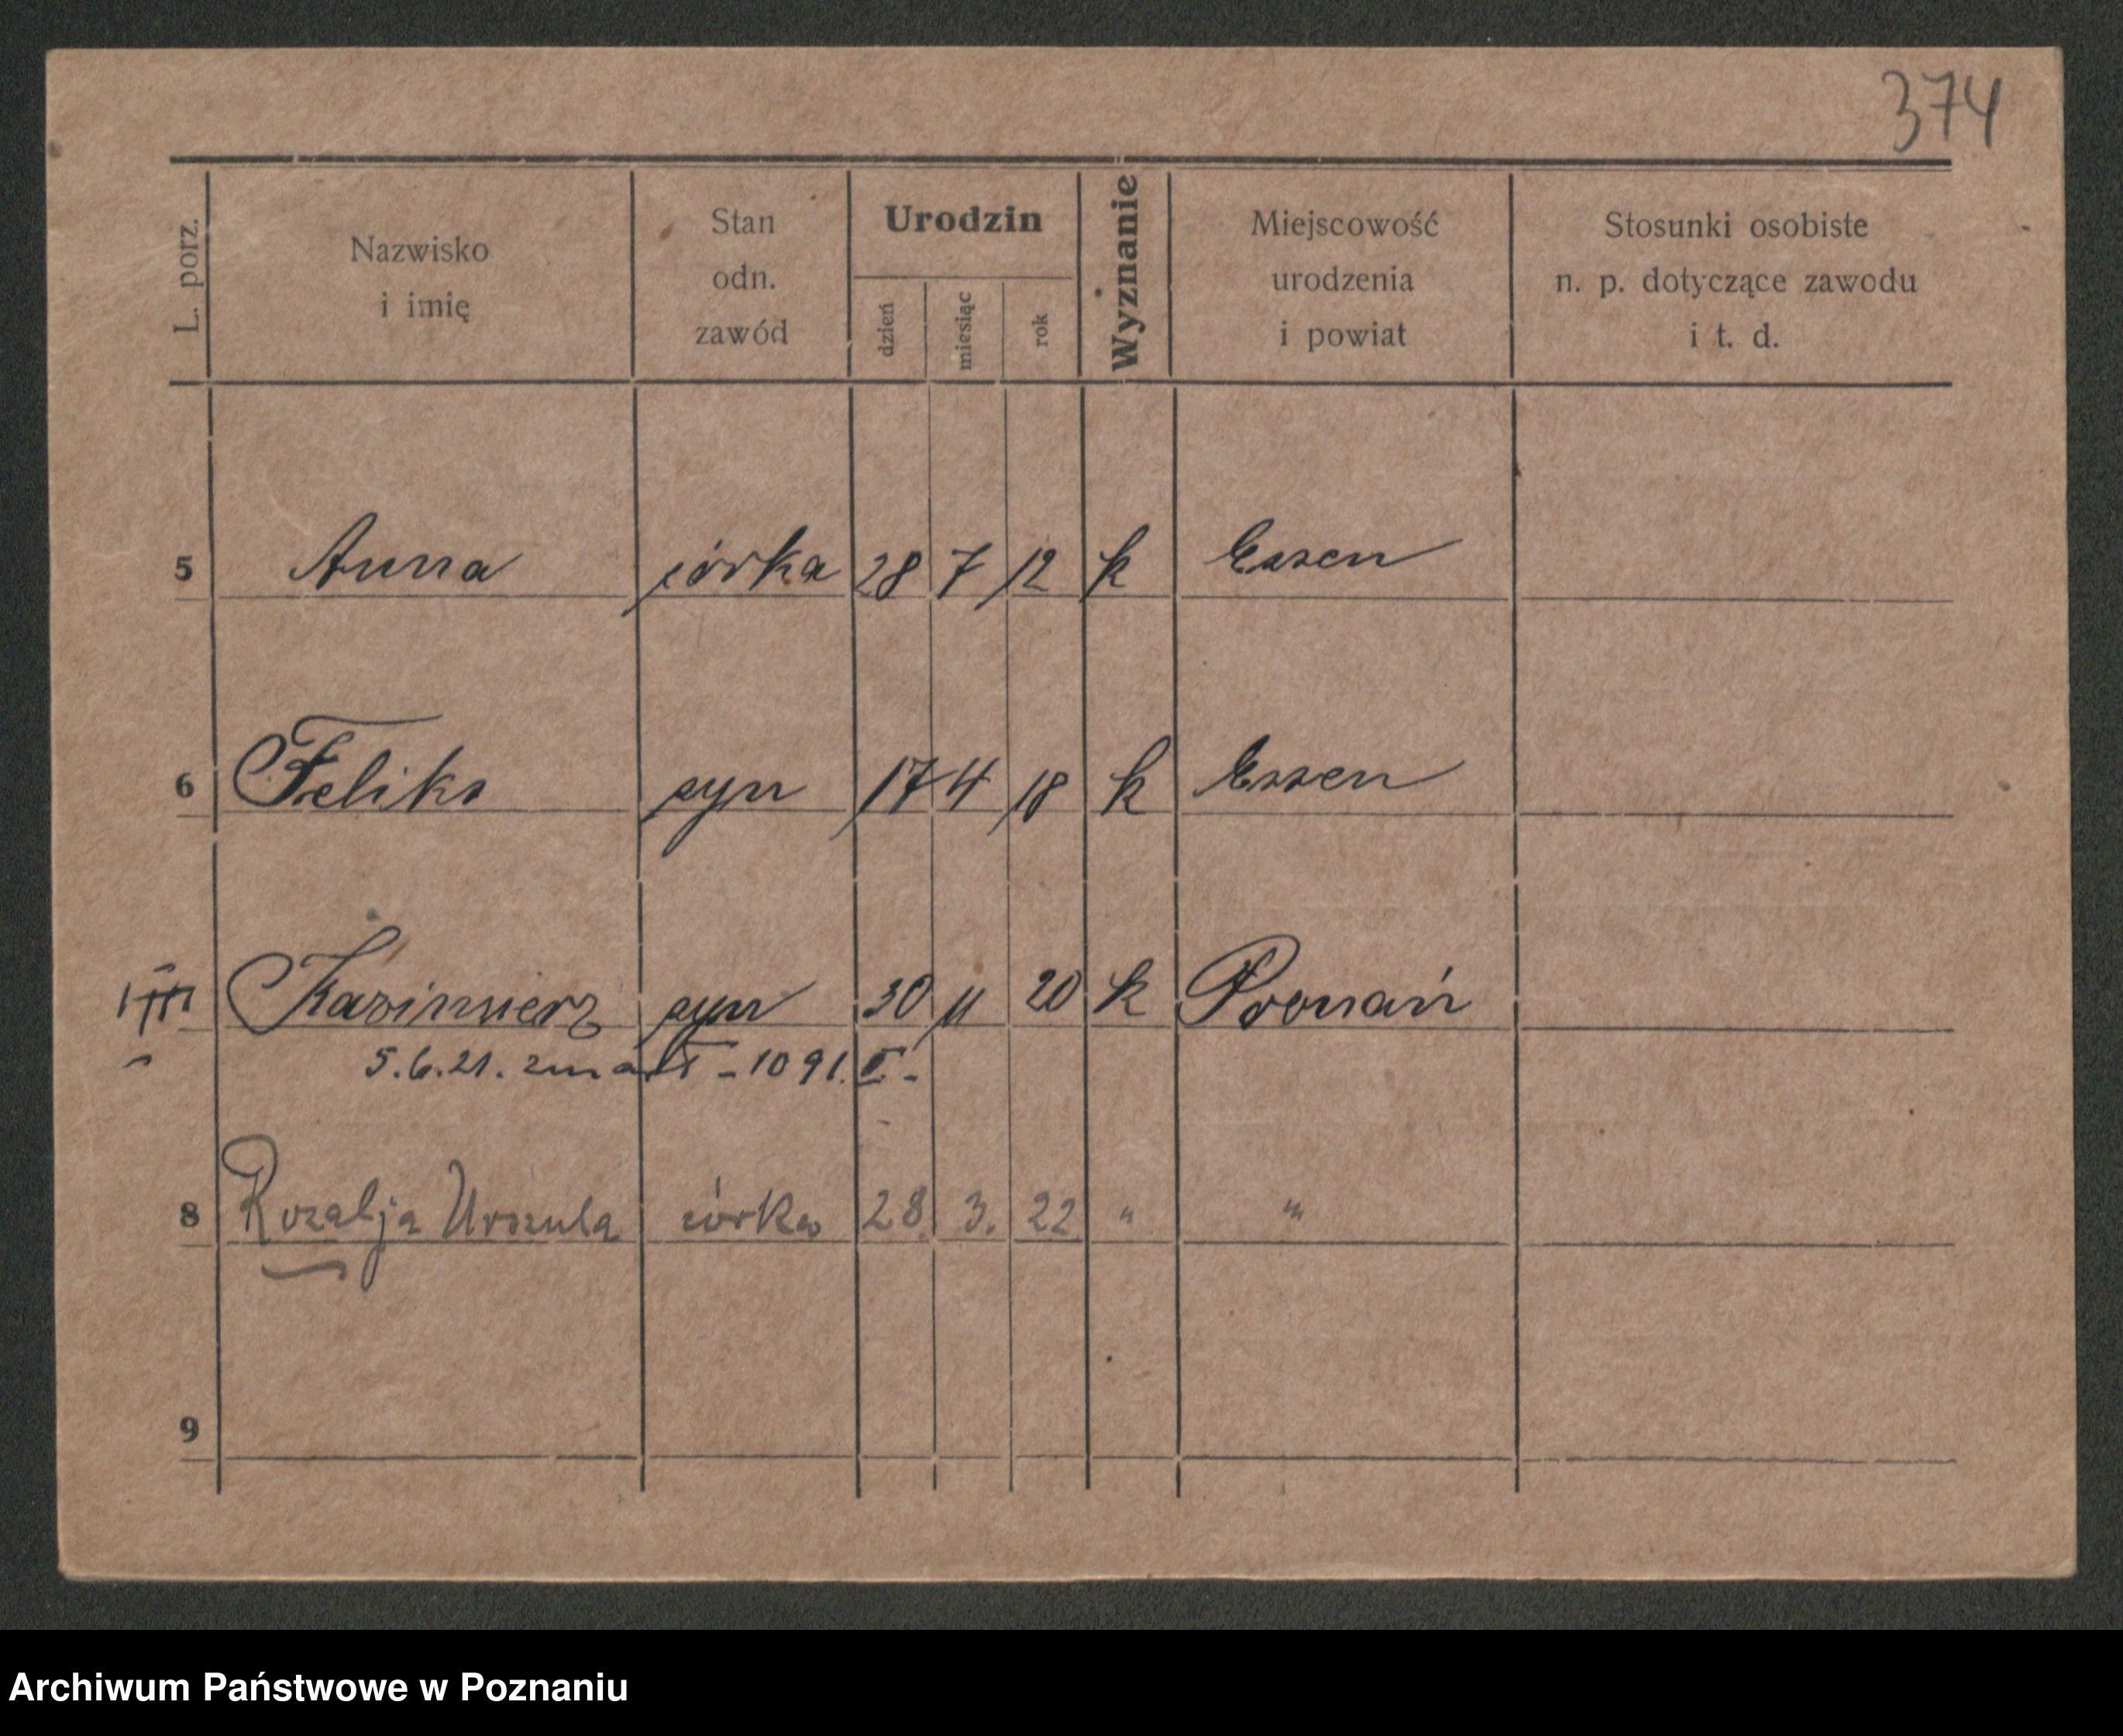 374
L. porz. Nazwisko i imię Stan odn. zawód Urodzin dzień miesiąc rok Wyznanie Miejscowość urodzenia i powiat Stosunki osobiste n. p. dotyczące zawodu i t. d.
5 Anna córka 28 7 12 k Essen
6 Feliks syn 17 4 18 k Essen
Kazimierz syn 30 11 20 k Poznań
5.6.21. zmarł - 1091. II. -
8 Rozalja Urszula córka 28 3. 22 " "
9
Archiwum Państwowe w Poznaniu